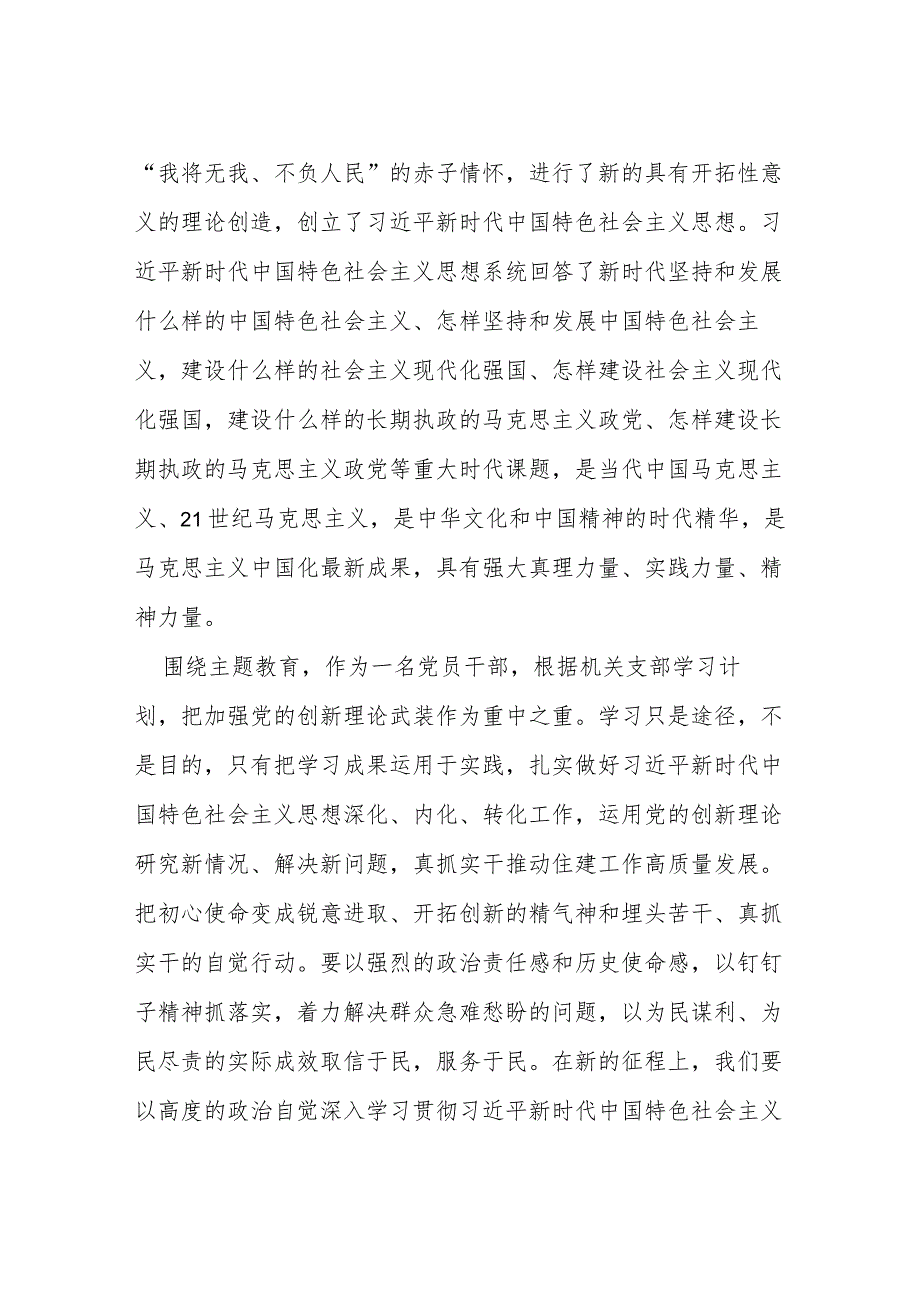 “我将无我、不负人民”的赤子情怀，进行了新的具有开拓性意
义的理论创造，创立了习近平新时代中国特色社会主义思想。习
近平新时代中国特色社会主义思想系统回答了新时代坚持和发展
什么样的中国特色社会主义、怎样坚持和发展中国特色社会主
义，建设什么样的社会主义现代化强国、怎样建设社会主义现代
化强国，建设什么样的长期执政的马克思主义政党、怎样建设长
期执政的马克思主义政党等重大时代课题，是当代中国马克思主
义、21世纪马克思主义，是中华文化和中国精神的时代精华，是
马克思主义中国化最新成果，具有强大真理力量、实践力量、精
神力量。
围绕主题教育，作为一名党员干部，根据机关支部学习计
划，把加强党的创新理论武装作为重中之重。学习只是途径，不
是目的，只有把学习成果运用于实践，扎实做好习近平新时代中
国特色社会主义思想深化、内化、转化工作，运用党的创新理论
研究新情况、解决新问题，真抓实干推动住建工作高质量发展。
把初心使命变成锐意进取、开拓创新的精气神和埋头苦干、真抓
实干的自觉行动。要以强烈的政治责任感和历史使命感，以钉钉
子精神抓落实，着力解决群众急难愁盼的问题，以为民谋利、为
民尽责的实际成效取信于民，服务于民。在新的征程上，我们要
以高度的政治自觉深入学习贯彻习近平新时代中国特色社会主义